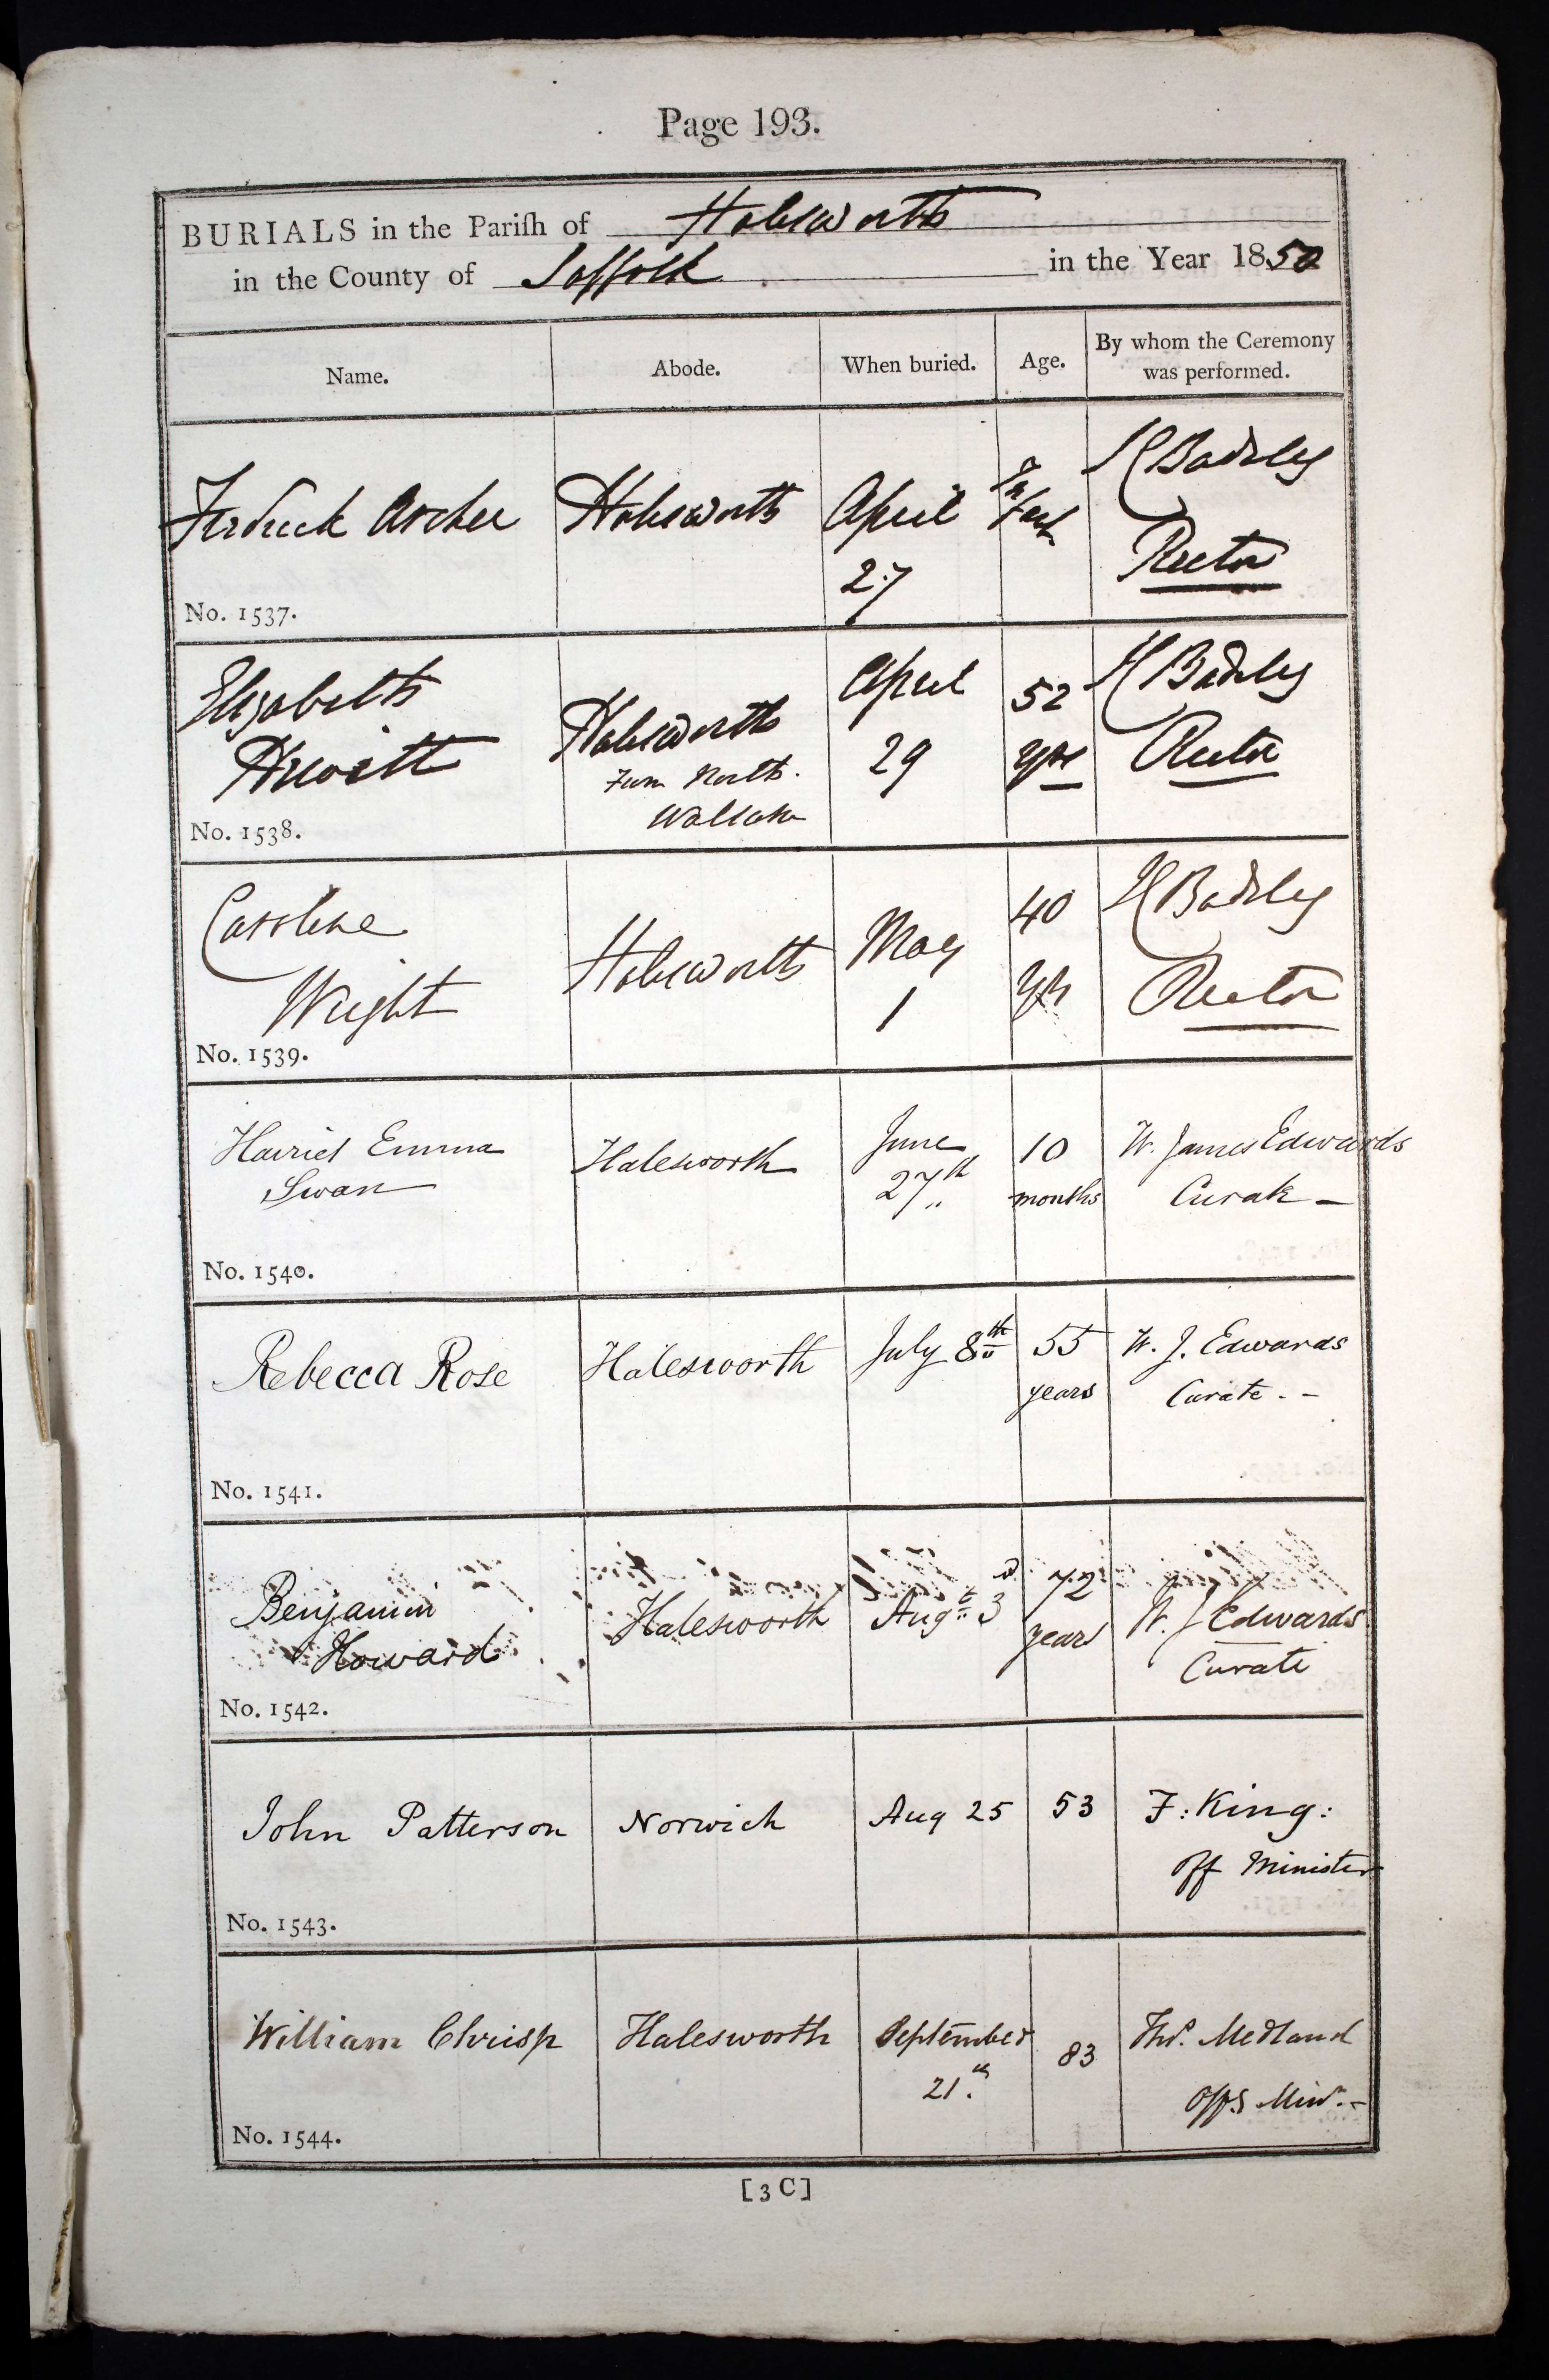 Page 193.
BURIALS in the Pariſh of Halesworth
in the County of Suffolk in the Year 1850
Name. Abode. When buried. Age. By whom the Ceremony was performed.
Frederick Archer Halesworth April 27 Infant H Badeley Rector
No. 1537.
Elizabeth Hewitt Halesworth from North Walsham April 29 52 yrs H Badeley Rector
No. 1538.
Caroline Wright Halesworth May 1 40 yrs H Badeley Rector
No. 1539.
Harriet Emma Swan Halesworth June 27th 10 months W. James Edwards Curate
No. 1540.
Rebecca Rose Halesworth July 8th 55 years W. J. Edwards Curate
No. 1541.
Benjamin Howard Halesworth Augt 3d 72 years W. J Edwards Curate
No. 1542.
John Patterson Norwich Aug 25 53 F: King: off Minister
No. 1543.
William Chrisp Halesworth September 21th 83 Thos. Medland Offg Minr.
No. 1544.
[3C]